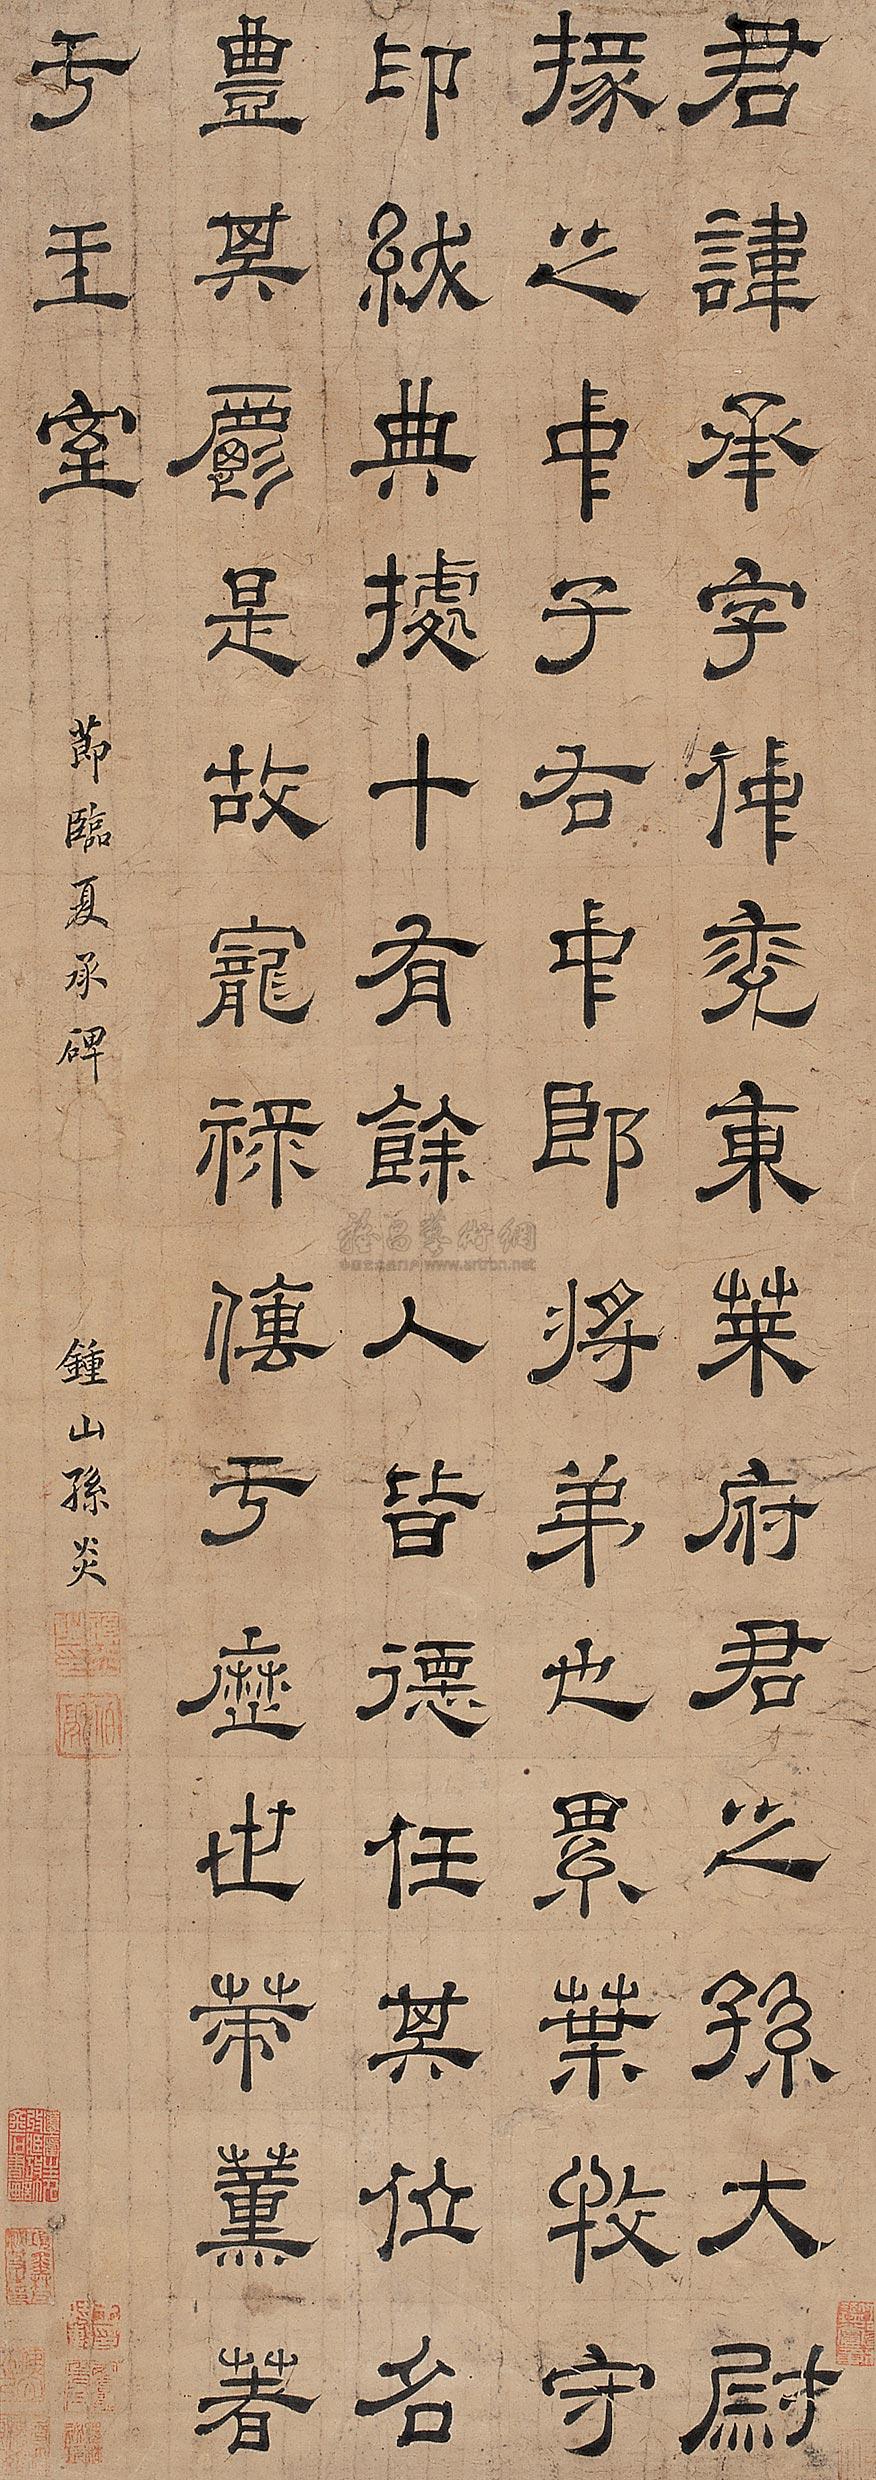 君諱承字仲兖東萊府君之孫大尉
掾之中子右中郎將弟也累葉牧守
印紱典據十有餘人皆德任其位名
豐其爵是故寵祿傳于歷世策薰著
于王室
節臨夏承碑 鍾山孫炎
雅昌藝術網
www.artron.net